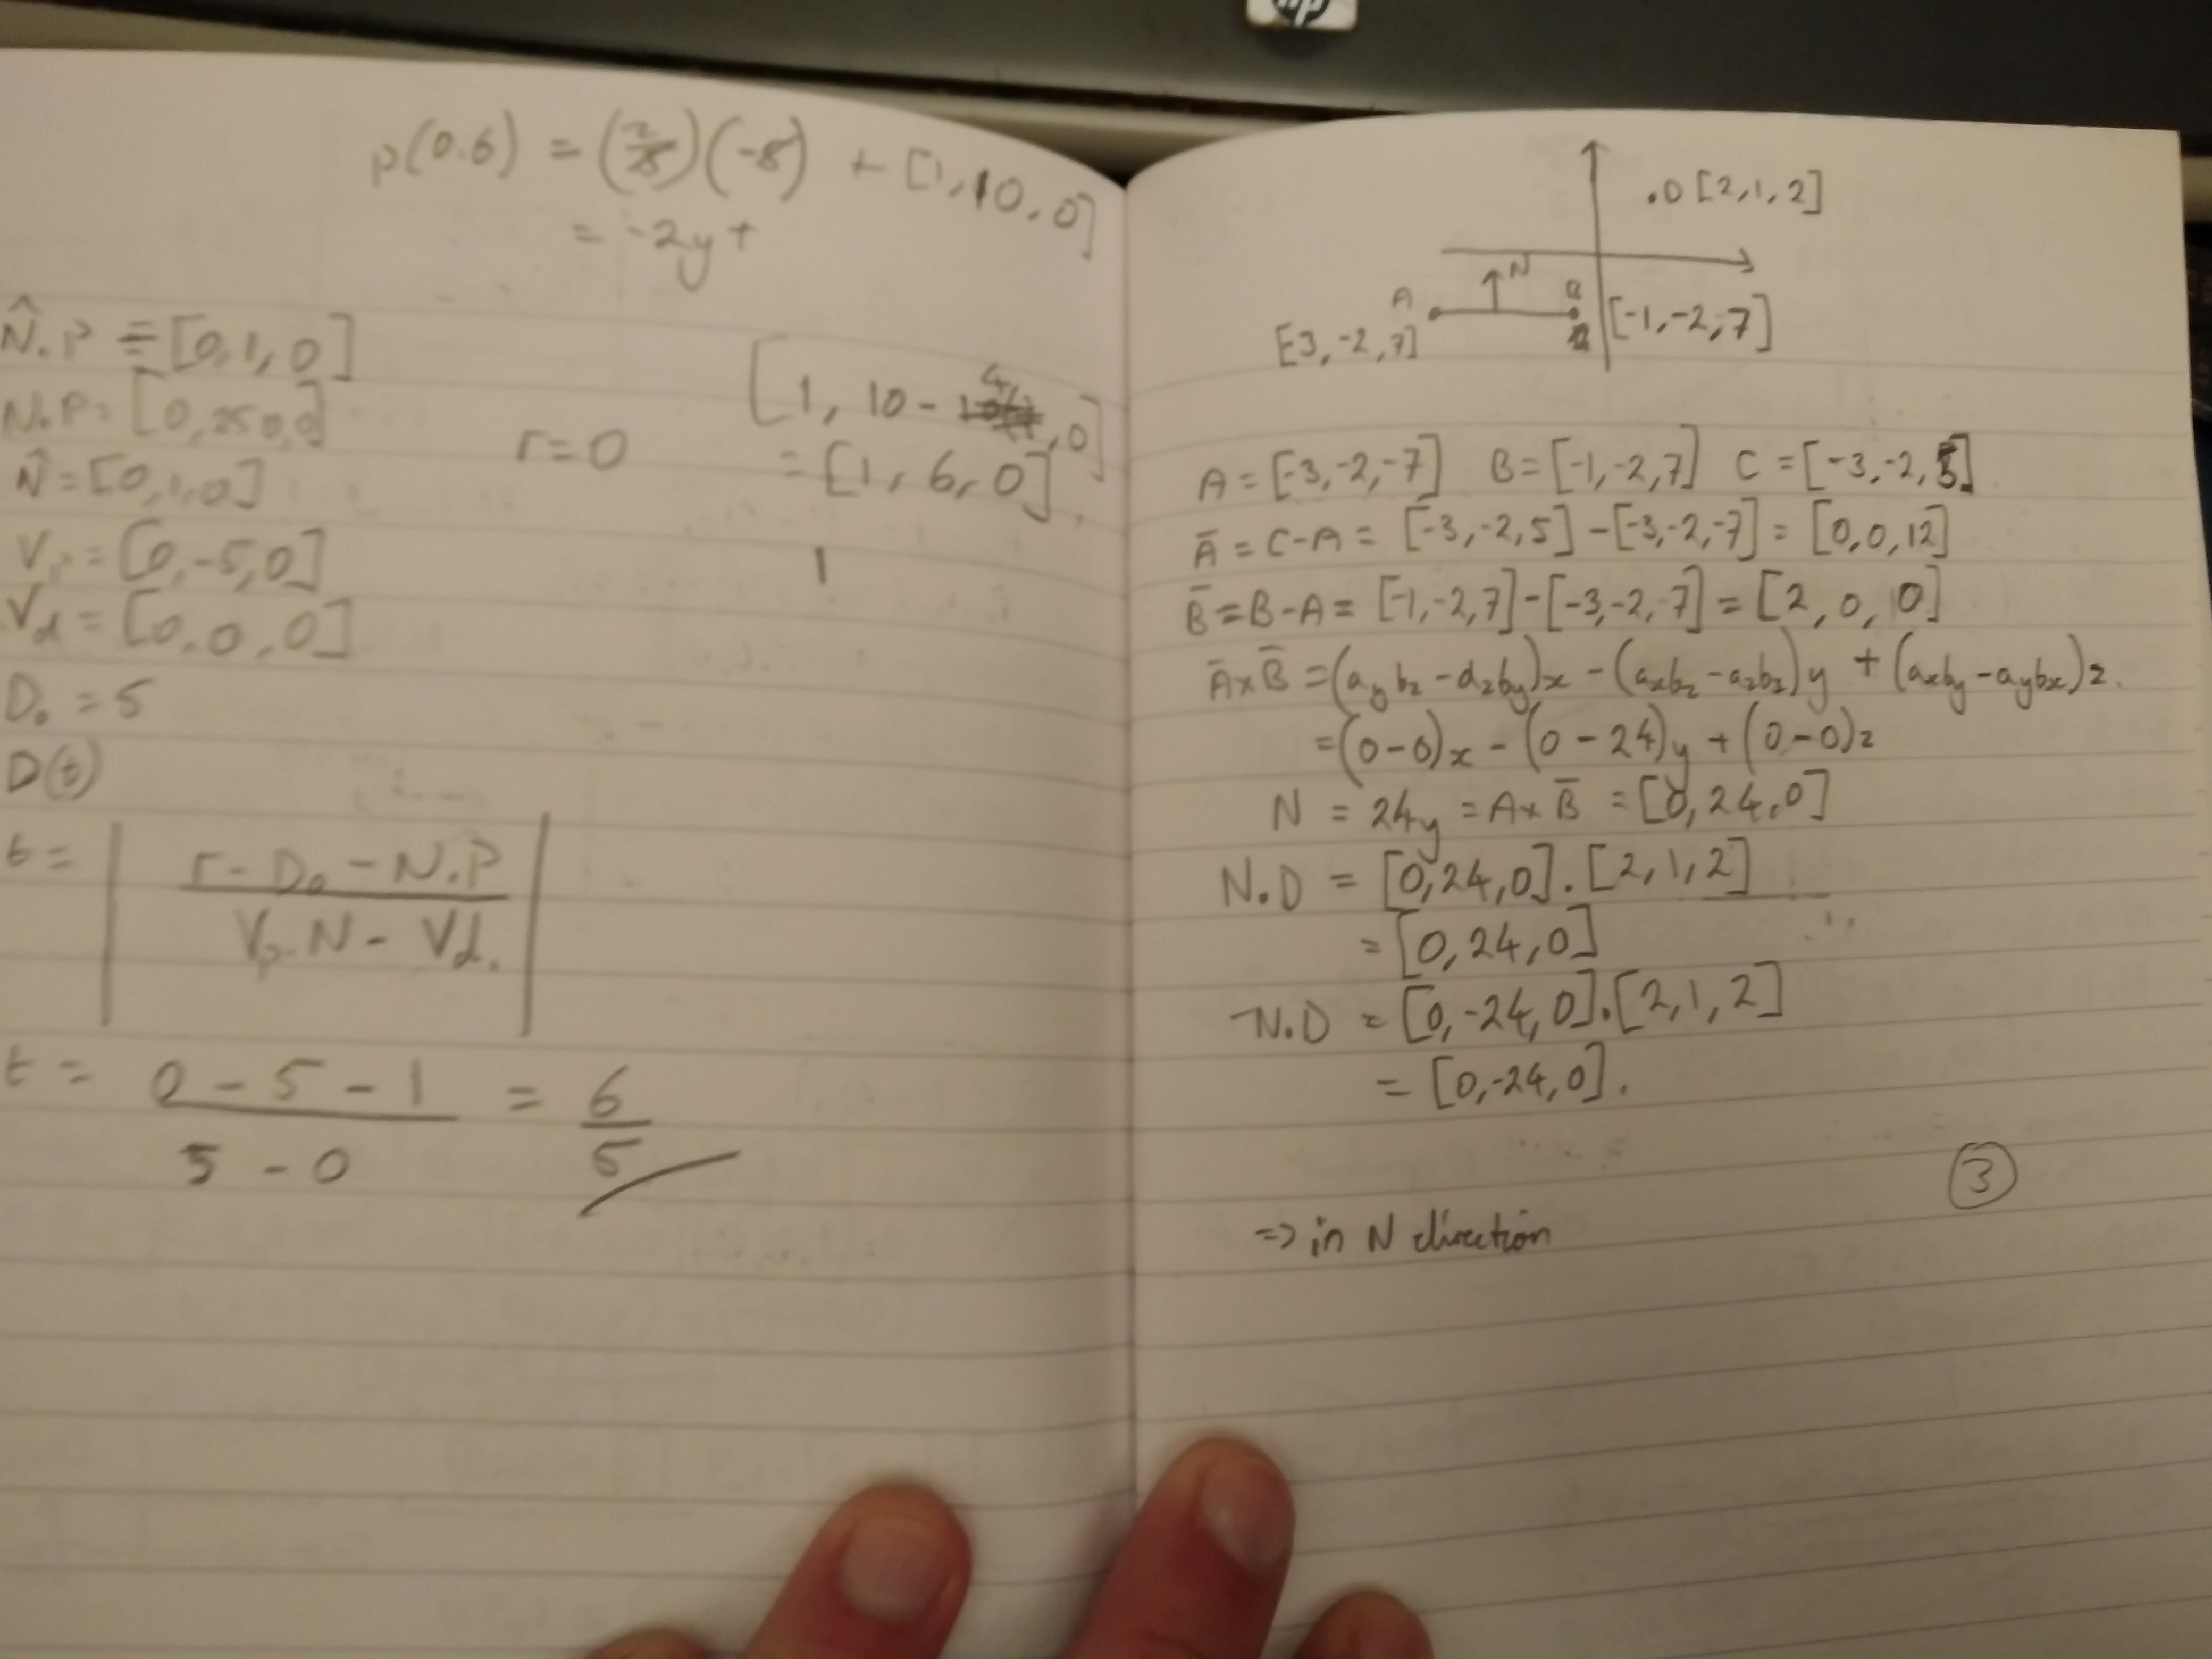 hp
p(0.6) = (2/5)(-5) + [1, 10, 0]
= -2y +
N̂.P = [0, 1, 0]
N.P = [0, 25, 0, 0]
N̂ = [0, 1, 0]
r = 0
[1, 10 - 4, 0]
= [1, 6, 0]
Vp = [0, -5, 0]
1
Vd = [0, 0, 0]
D₀ = 5
D(t)
t = | r - D₀ - N.P / Vp.N - Vd. |
t = 0 - 5 - 1 / 5 - 0 = 6/5
.D [2, 1, 2]
N
A
B
[-3, -2, 7]
[-1, -2, 7]
A = [-3, -2, -7] B = [-1, -2, 7] C = [-3, -2, 5]
Ā = C-A = [-3, -2, 5] - [-3, -2, -7] = [0, 0, 12]
B̄ = B-A = [-1, -2, 7] - [-3, -2, -7] = [2, 0, 10]
Ā×B̄ = (aybz - azby)x - (axbz - azbx)y + (axby - aybx)z.
= (0-0)x - (0-24)y + (0-0)z
N = 24y = A×B̄ = [0, 24, 0]
N.D = [0, 24, 0].[2, 1, 2]
= [0, 24, 0]
-N.D = [0, -24, 0].[2, 1, 2]
= [0, -24, 0].
3
=> in N direction